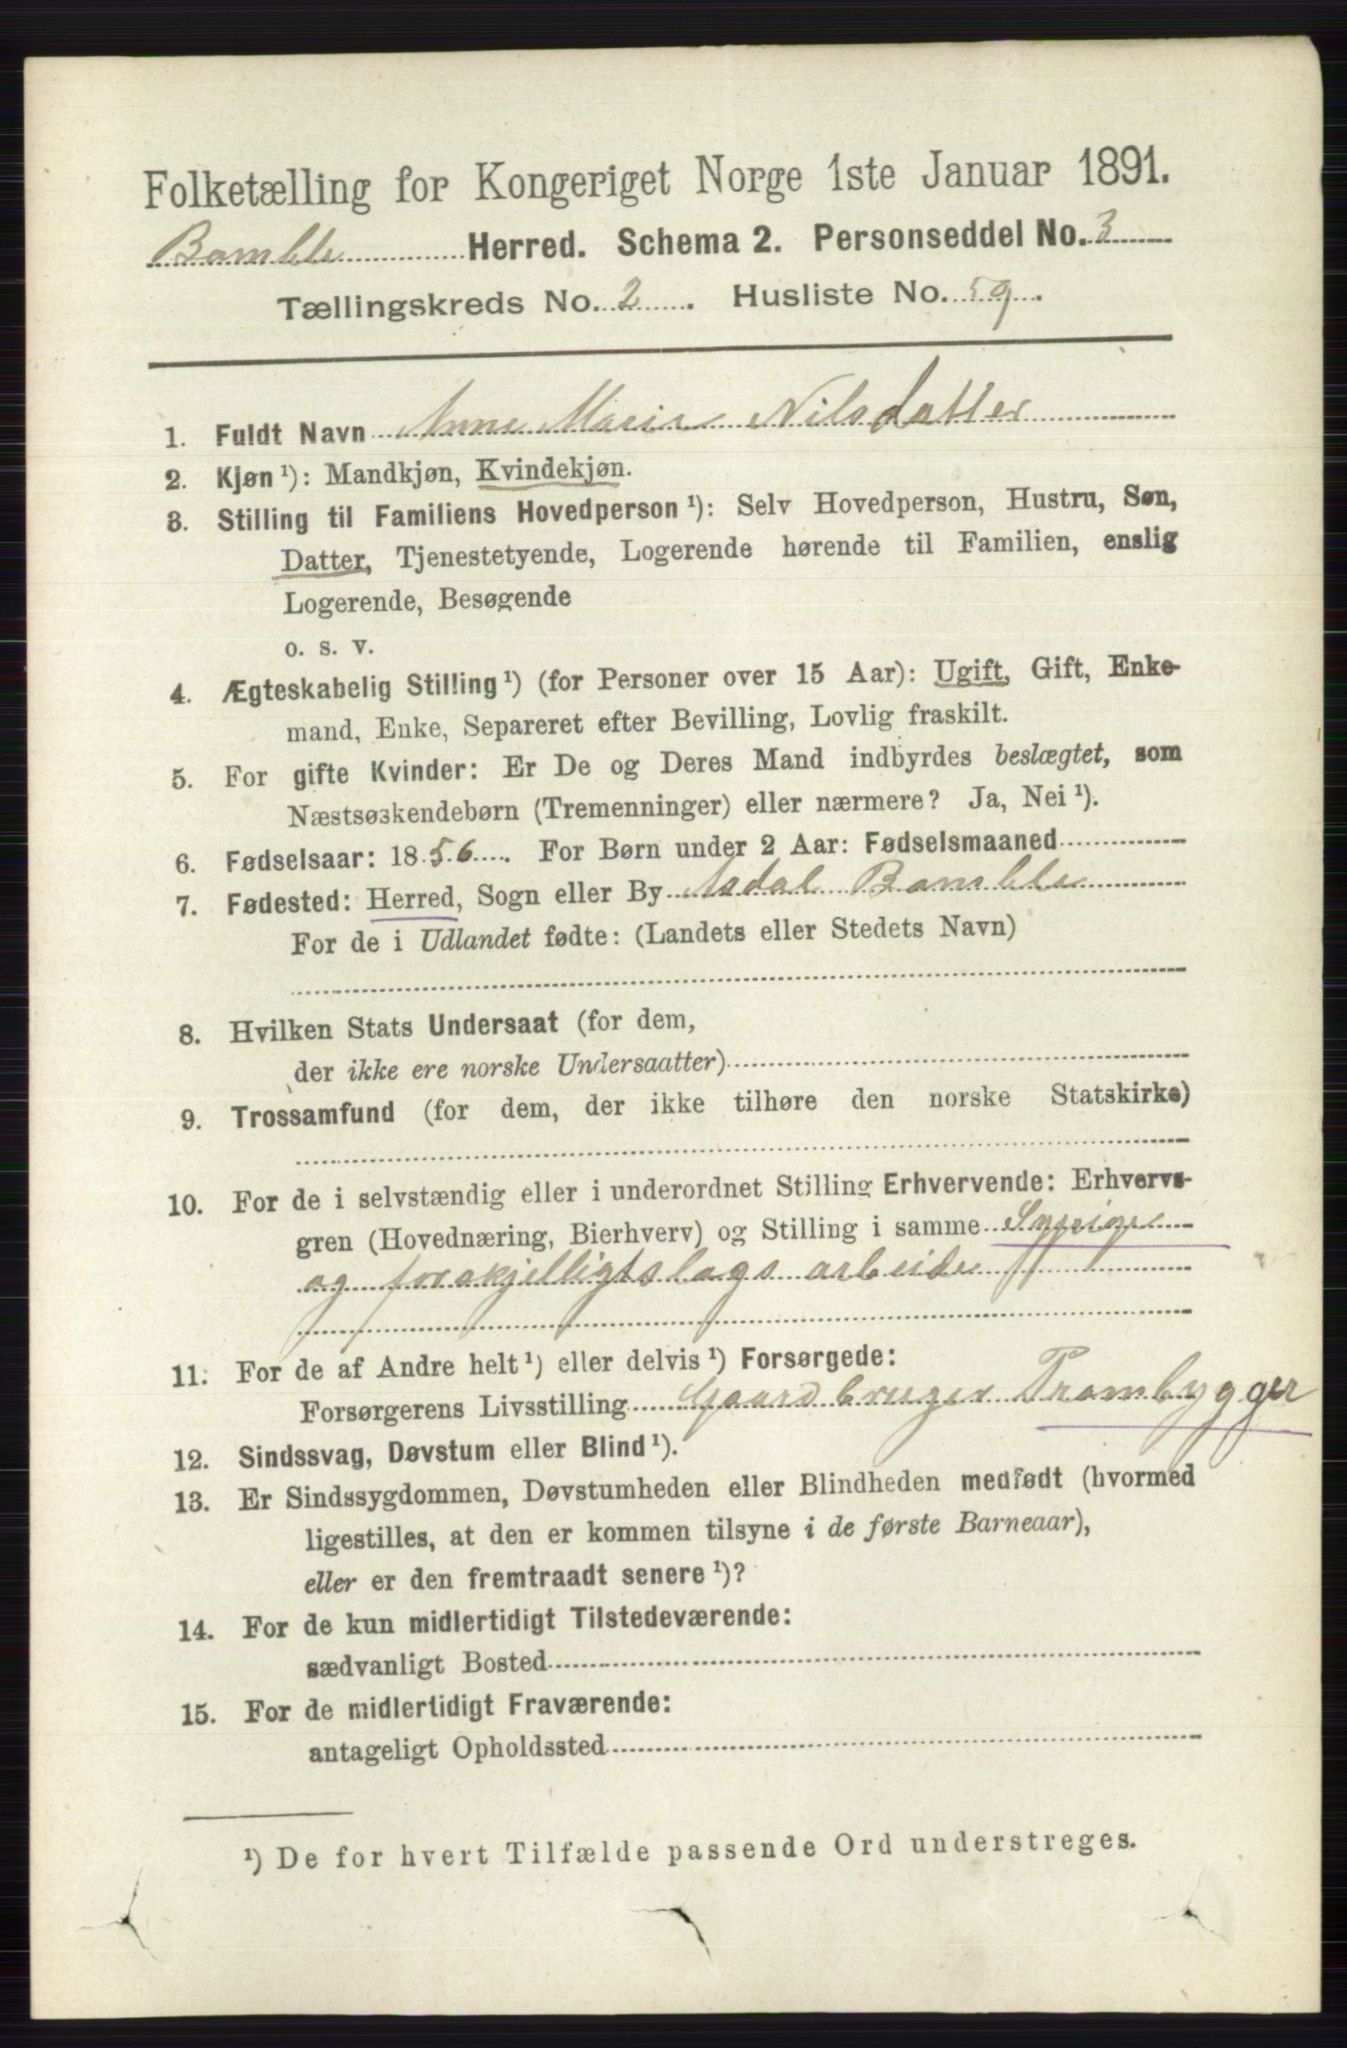 Folketælling for Kongeriget Norge 1ste Januar 1891.
Bamble Herred. Schema 2. Personseddel No. 3
Tællingskreds No. 2. Husliste No. 59.
1. Fuldt Navn Anne Marie Nilsdatter
2. Kjøn ¹): Mandkjøn, Kvindekjøn.
3. Stilling til Familiens Hovedperson ¹): Selv Hovedperson, Hustru, Søn,
Datter, Tjenestetyende, Logerende hørende til Familien, enslig
Logerende, Besøgende
o. s. v.
4. Ægteskabelig Stilling ¹) (for Personer over 15 Aar): Ugift, Gift, Enke-
mand, Enke, Separeret efter Bevilling, Lovlig fraskilt.
5. For gifte Kvinder: Er De og Deres Mand indbyrdes beslægtet, som
Næstsøskendebørn (Tremenninger) eller nærmere? Ja, Nei ¹).
6. Fødselsaar: 1856. For Børn under 2 Aar: Fødselsmaaned
7. Fødested: Herred, Sogn eller By Asdal Bamble
For de i Udlandet fødte: (Landets eller Stedets Navn)
8. Hvilken Stats Undersaat (for dem,
der ikke ere norske Undersaatter)
9. Trossamfund (for dem, der ikke tilhøre den norske Statskirke)
10. For de i selvstændig eller i underordnet Stilling Erhvervende: Erhvervs-
gren (Hovednæring, Bierhverv) og Stilling i samme Sypige
og forskjelligtslags arbeide
11. For de af Andre helt ¹) eller delvis ¹) Forsørgede:
Forsørgerens Livsstilling Gaardbruger Prambygger
12. Sindssvag, Døvstum eller Blind ¹).
13. Er Sindssygdommen, Døvstumheden eller Blindheden medfødt (hvormed
ligestilles, at den er kommen tilsyne i de første Barneaar),
eller er den fremtraadt senere ¹)?
14. For de kun midlertidigt Tilstedeværende:
sædvanligt Bosted
15. For de midlertidigt Fraværende:
antageligt Opholdssted
¹) De for hvert Tilfælde passende Ord understreges.